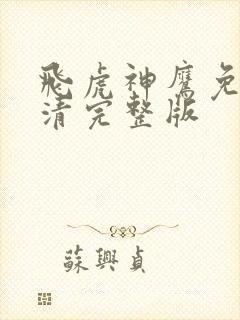 飛虎神鷹免
清完整版
蘇興貞